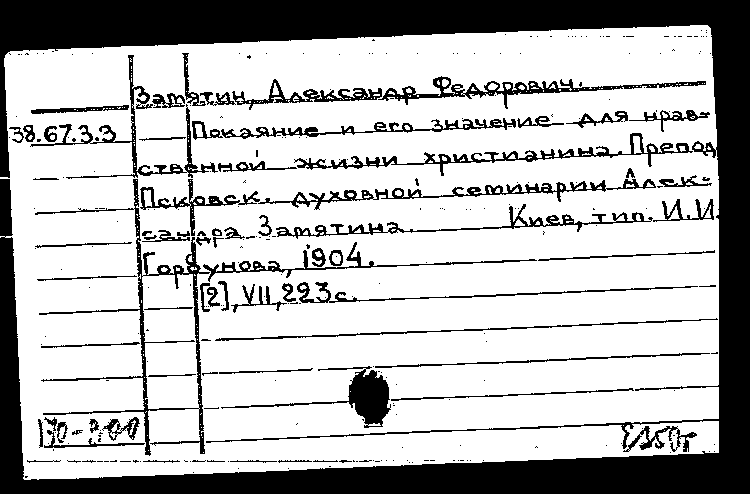 Замятин, Александр Федорович.
38.67.3.3 Покаяние и его значение для нрав-
ственной жизни христианина. Препод
Псковск. духовной семинарии Алек-
сандра Замятина. Киев, тип. И.И.
Горбунова, 1904.
[2], VII, 223 с.